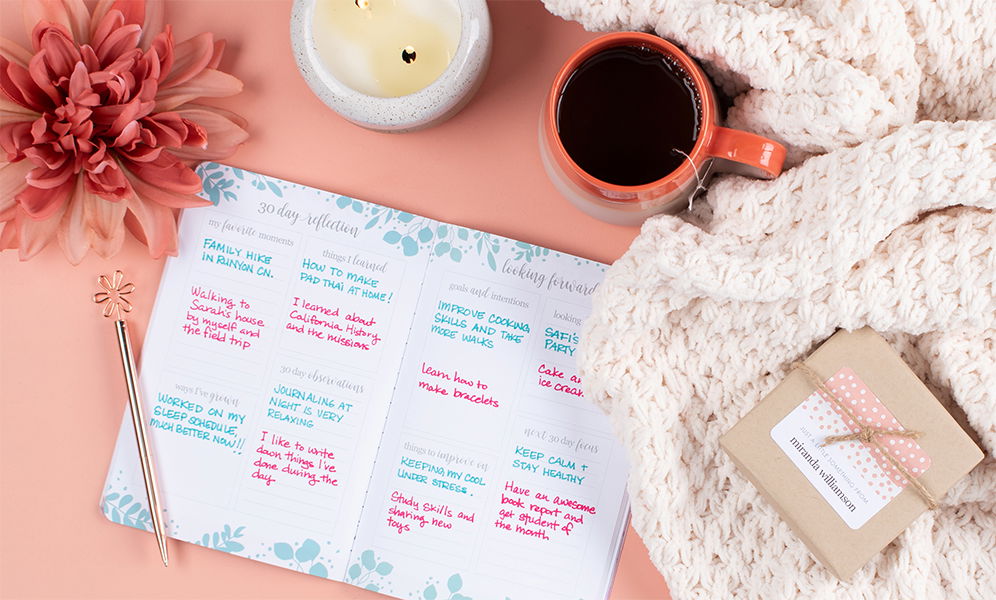 30 day reflection
my favorite moments
FAMILY HIKE
IN RUNYON CN.
Walking to
Sarah's house
by myself and
the field trip
things I learned
HOW TO MAKE
PAD THAI AT HOME!
I learned about
California History
and the missions
ways I've grown
WORKED ON MY
SLEEP SCHEDULE,
MUCH BETTER NOW!!
30 day observations
JOURNALING AT
NIGHT IS VERY
RELAXING
I like to write
down things I've
done during the
day
looking forward
goals and intentions
IMPROVE COOKING
SKILLS AND TAKE
MORE WALKS
learn how to
make bracelets
looking
SAFI'S
PARTY
Cake
ice cream
things to improve on
KEEPING MY COOL
UNDER STRESS.
Study Skills and
sharing new
toys
next 30 day focus
KEEP CALM +
STAY HEALTHY
Have an awesome
book report and
get student of
the month
JUST A LITTLE SOMETHING FROM
miranda williamson